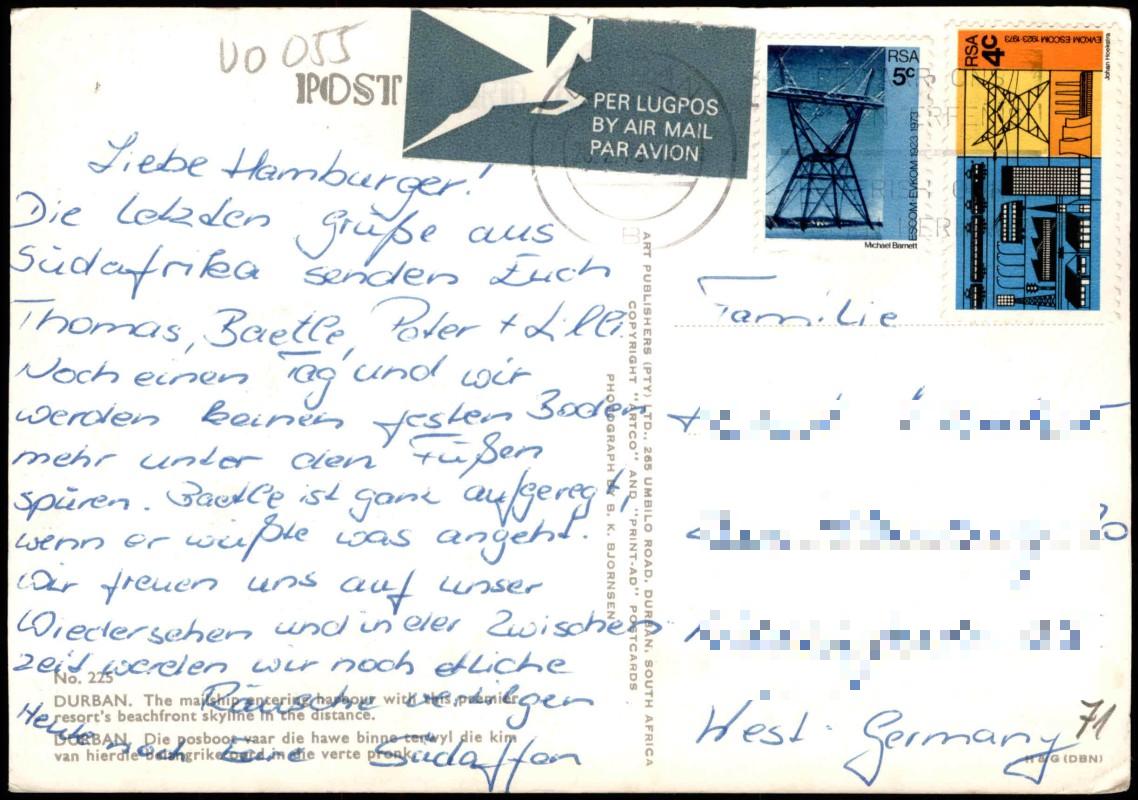 VO 055
POST
PER LUGPOS
BY AIR MAIL
PAR AVION
RSA
5c
ESCOM·EVKOM 1923·1973
Michael Barnett
RSA
4c
EVKOM ESCOM 1923·1973
Johan Hoekstra
Liebe Hamburger!
Die letzten Grüße aus
Südafrika senden Euch
Thomas, Baetle, Peter + Lilli.
Noch einen Tag und wir
werden keinen festen Boden
mehr unter den Füßen
spüren. Baetle ist ganz aufgeregt,
wenn er wüßte was angeht.
Wir freuen uns auf unser
Wiedersehen und in der Zwischen
zeit werden wir noch etliche
Räusche
Heute noch Eure Südaffen
No. 225
DURBAN. The mailship entering harbour with this premier
resort's beachfront skyline in the distance.
DURBAN. Die posboot vaar die hawe binne terwyl die kim
van hierdie belangrike oord in die verte pronk.
ART PUBLISHERS (PTY) LTD., 265 UMBILO ROAD, DURBAN, SOUTH AFRICA
COPYRIGHT "ARTCO" AND "PRINT-AD" POSTCARDS
PHOTOGRAPH BY B. K. BJORNSEN
Familie
West-Germany
71
H & G (DBN)